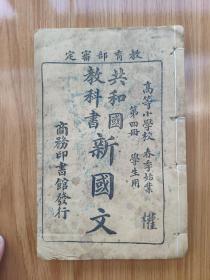 教育部審定
高等小學校 春季始業
第四冊 學生用
共和國
教科書
新國文
商務印書館發行
權